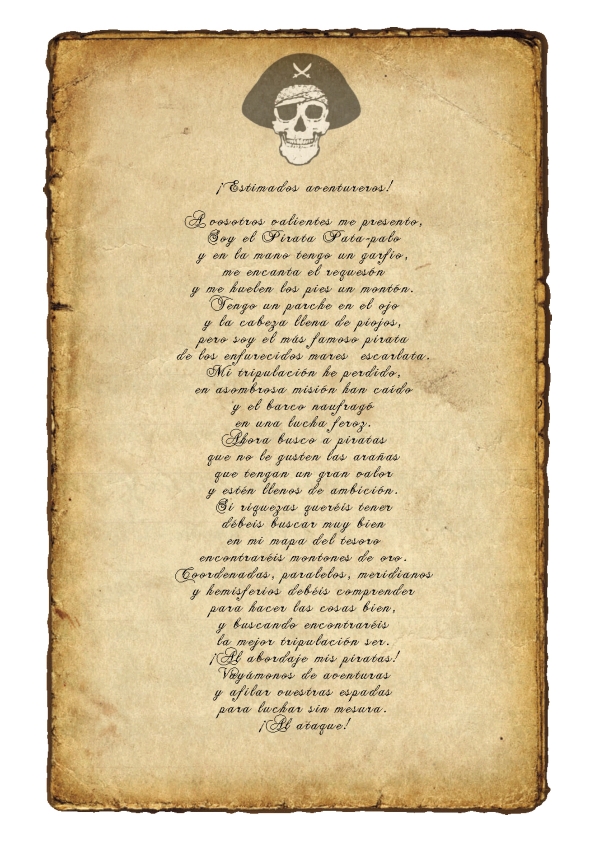 ¡Estimados aventureros!
A vosotros valientes me presento,
Soy el Pirata Pata-palo
y en la mano tengo un garfio,
me encanta el requesón
y me huelen los pies un montón.
Tengo un parche en el ojo
y la cabeza llena de piojos,
pero soy el más famoso pirata
de los enfurecidos mares escarlata.
Mi tripulación he perdido,
en asombrosa misión han caido
y el barco naufragó
en una lucha feroz.
Ahora busco a piratas
que no le gusten las arañas
que tengan un gran valor
y estén llenos de ambición.
Si riquezas queréis tener
débeis buscar muy bien
en mi mapa del tesoro
encontraréis montones de oro.
Coordenadas, paralelos, meridianos
y hemisferios debéis comprender
para hacer las cosas bien,
y buscando encontraréis
la mejor tripulación ser.
¡Al abordaje mis piratas!
Vayámonos de aventuras
y afilar vuestras espadas
para luchar sin mesura.
¡Al ataque!